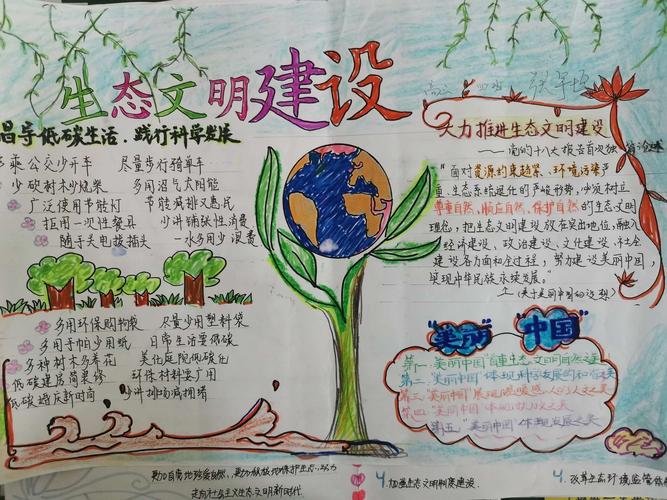 生态文明建设
倡导低碳生活、践行科学发展
乘公交少开车 尽量步行踏单车
少砍树木少烧柴 多用沼气太阳能
广泛使用节能灯 节能减排又惠民
拒用一次性餐具 少讲铺张性消费
随手关电拔插头 一水多用少浪费
多用环保购物袋 尽量少用塑料袋
多用手帕少用纸 日常生活要低碳
多种树木多养花 美化庭院低碳化
低碳建房简装修 环保材料要广用
低碳婚庆新时尚 少讲排场减拥堵
大力推进生态文明建设
——党的十八大报告首次独
"面对资源约束趋紧、环境污染严
重、生态系统退化的严峻形势,必须树立
尊重自然、顺应自然、保护自然的生态文明
理念,把生态文明建设放在突出地位,融入
经济建设、政治建设、文化建设、社会
建设各方面和全过程,努力建设美丽中国,
实现中华民族永续发展。"
(关于美丽中国的设想)
"美丽 中国"
第一,"美丽中国"首重生态文明自然之美
第二,"美丽中国"体现科学发展的和谐之美
第三,"美丽中国"展现温暖感人的人文之美
第四,"美丽中国"体现
第五,"美丽中国"体现发展之美
更加自觉地珍爱自然,更加积极地保护生态,努力
走向社会主义生态文明新时代.
4.加强生态文明制度建设.
4.改革生态环境监管体